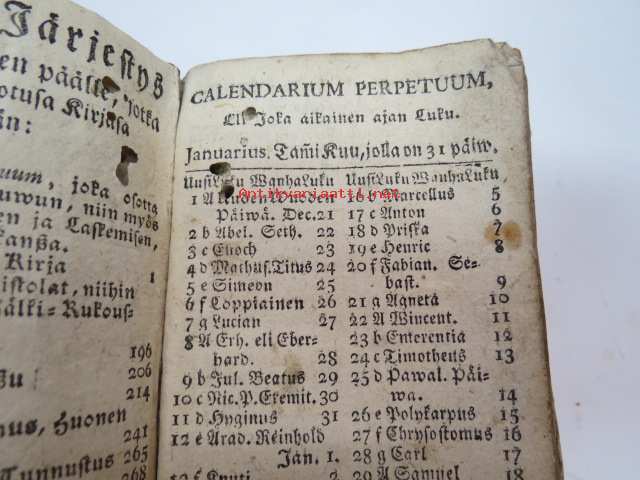 Järjestys
en päälle, jotka
otusa Kirjasa
än:
uum, joka osotta
uwun, niin myös
en ja Laskemisen,
kansa.
Kirja 1
istolat, niihin
älki-Rukous-
196
206
214
nus, Huonen
241
Tunnustus 265
268
CALENDARIUM PERPETUUM,
Eli Joka aikainen ajan Luku.
Januarius. Tam̃i Kuu, jolla on 31 päiw.
UusiLuku WanhaLuku
1 A Uuden Wuoden
Päiwä. Dec. 21
2 b Abel. Seth. 22
3 c Enoch 23
4 d Mathus. Titus 24
5 e Simeon 25
6 f Loppiainen 26
7 g Lucian 27
8 A Erh. eli Eber-
hard. 28
9 b Jul. Beatus 29
10 c Nic. P. Eremit. 30
11 d Hyginus 31
12 e Arad. Reinhold
Jan. 1.
13 f Knuti 2
UusiLuku WanhaLuku
16 b Marcellus 5
17 c Anton 6
18 d Priska 7
19 e Henric 8
20 f Fabian. Se-
bast. 9
21 g Agneta 10
22 A Wincent. 11
23 b Emerentia 12
24 c Timotheus 13
25 d Pawal. Päi-
wa. 14
26 e Polykarpus 15
27 f Chrysostomus 16
28 g Carl 17
29 A Samuel 18
Antikvariaatti.net